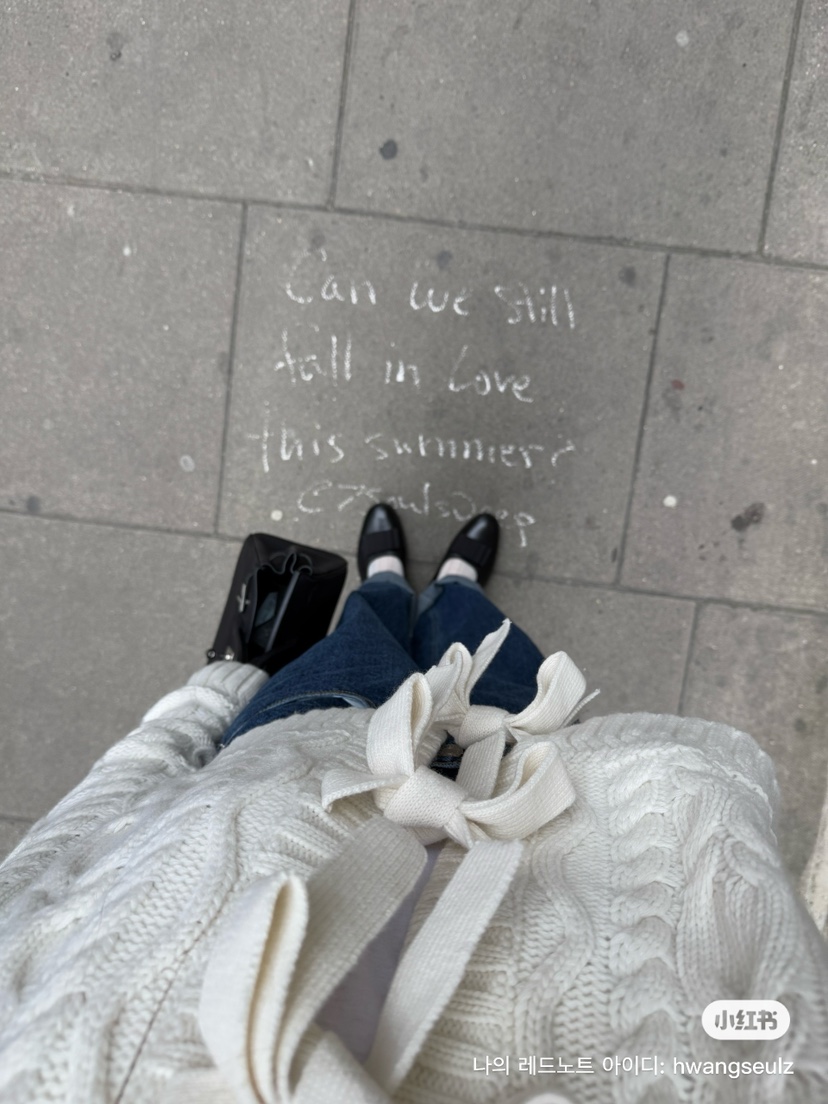 Can we still
fall in Love
this summer?
@7SoulsDeep
小红书
나의 레드노트 아이디: hwangseulz